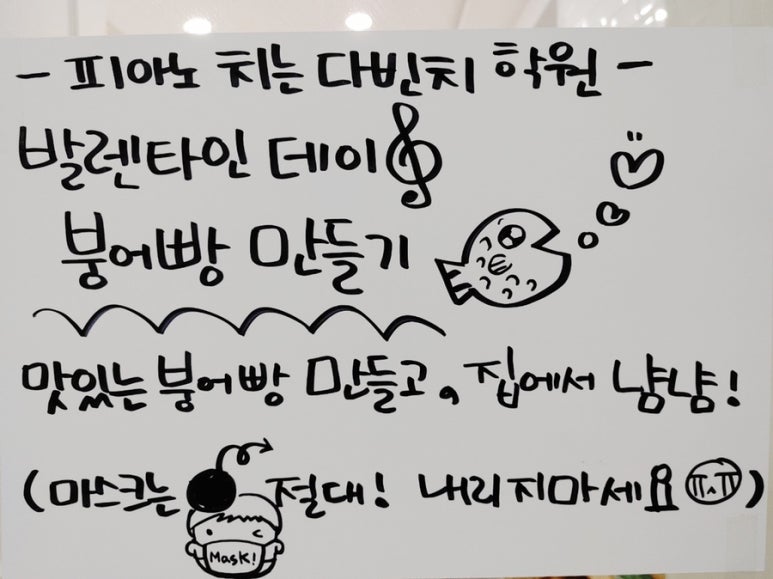 - 피아노 치는 다빈치 학원 -
발렌타인 데이
붕어빵 만들기
맛있는 붕어빵 만들고, 집에서 냠냠!
(마스크는 절대! 내리지마세요 ㅠ.ㅠ)
Mask!